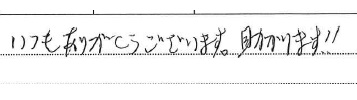 いつもありがとうございます。助かります!!